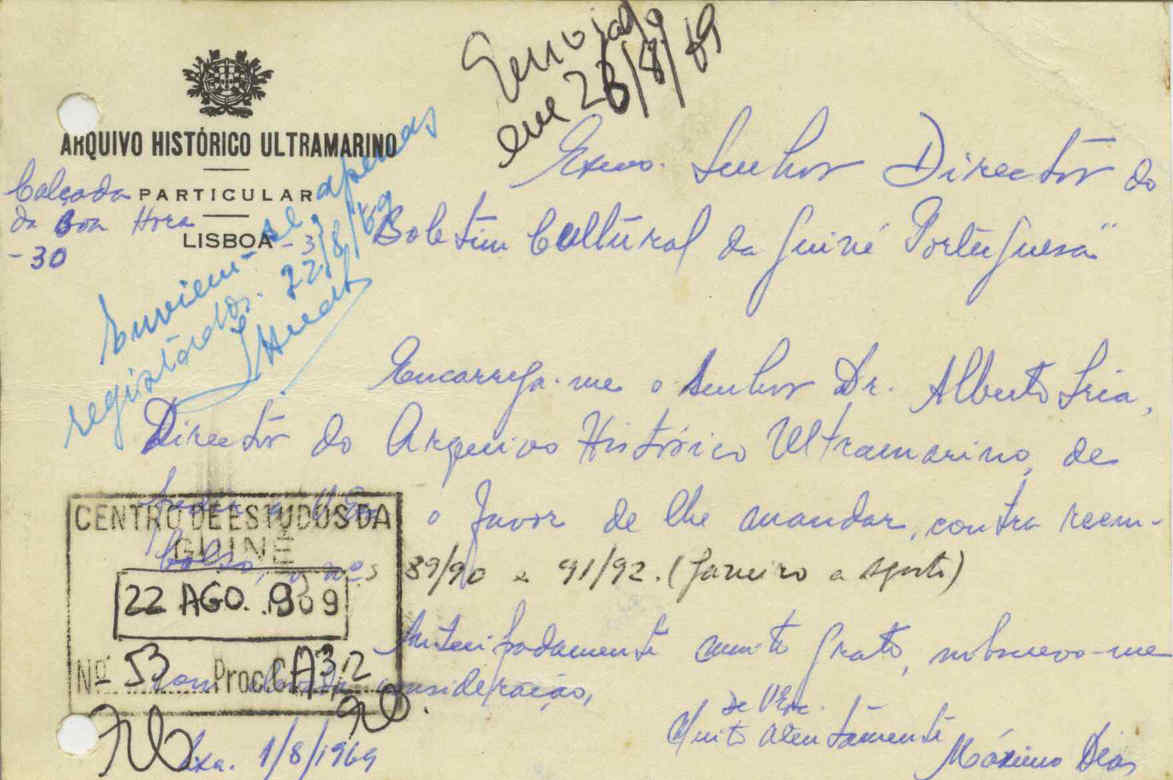 ARQUIVO HISTÓRICO ULTRAMARINO
PARTICULAR
LISBOA - 3
Calçada
da Boa Hora
- 30
em 26/8/69
Enviem-se apenas
registados. 22/8/69
Exmo. Senhor Director do
Boletim Cultural da Guiné Portuguesa"
Encarrega-me o Senhor Dr. Alberto Iria,
Director do Arquivo Histórico Ultramarino, de
pedir a V. Exa. o favor de lhe mandar, contra reem-
bolso, os nos. 89/90 e 91/92. (Janeiro a Agosto)
Antecipadamente muito grato, subscrevo-me
com consideração,
de V. Exa.
Muito Atentamente
Máximo Dias
Lxa. 1/8/1969
CENTRO DE ESTUDOS DA
GUINÉ
22 AGO. 969
Nº 53 Proc. C A3/2